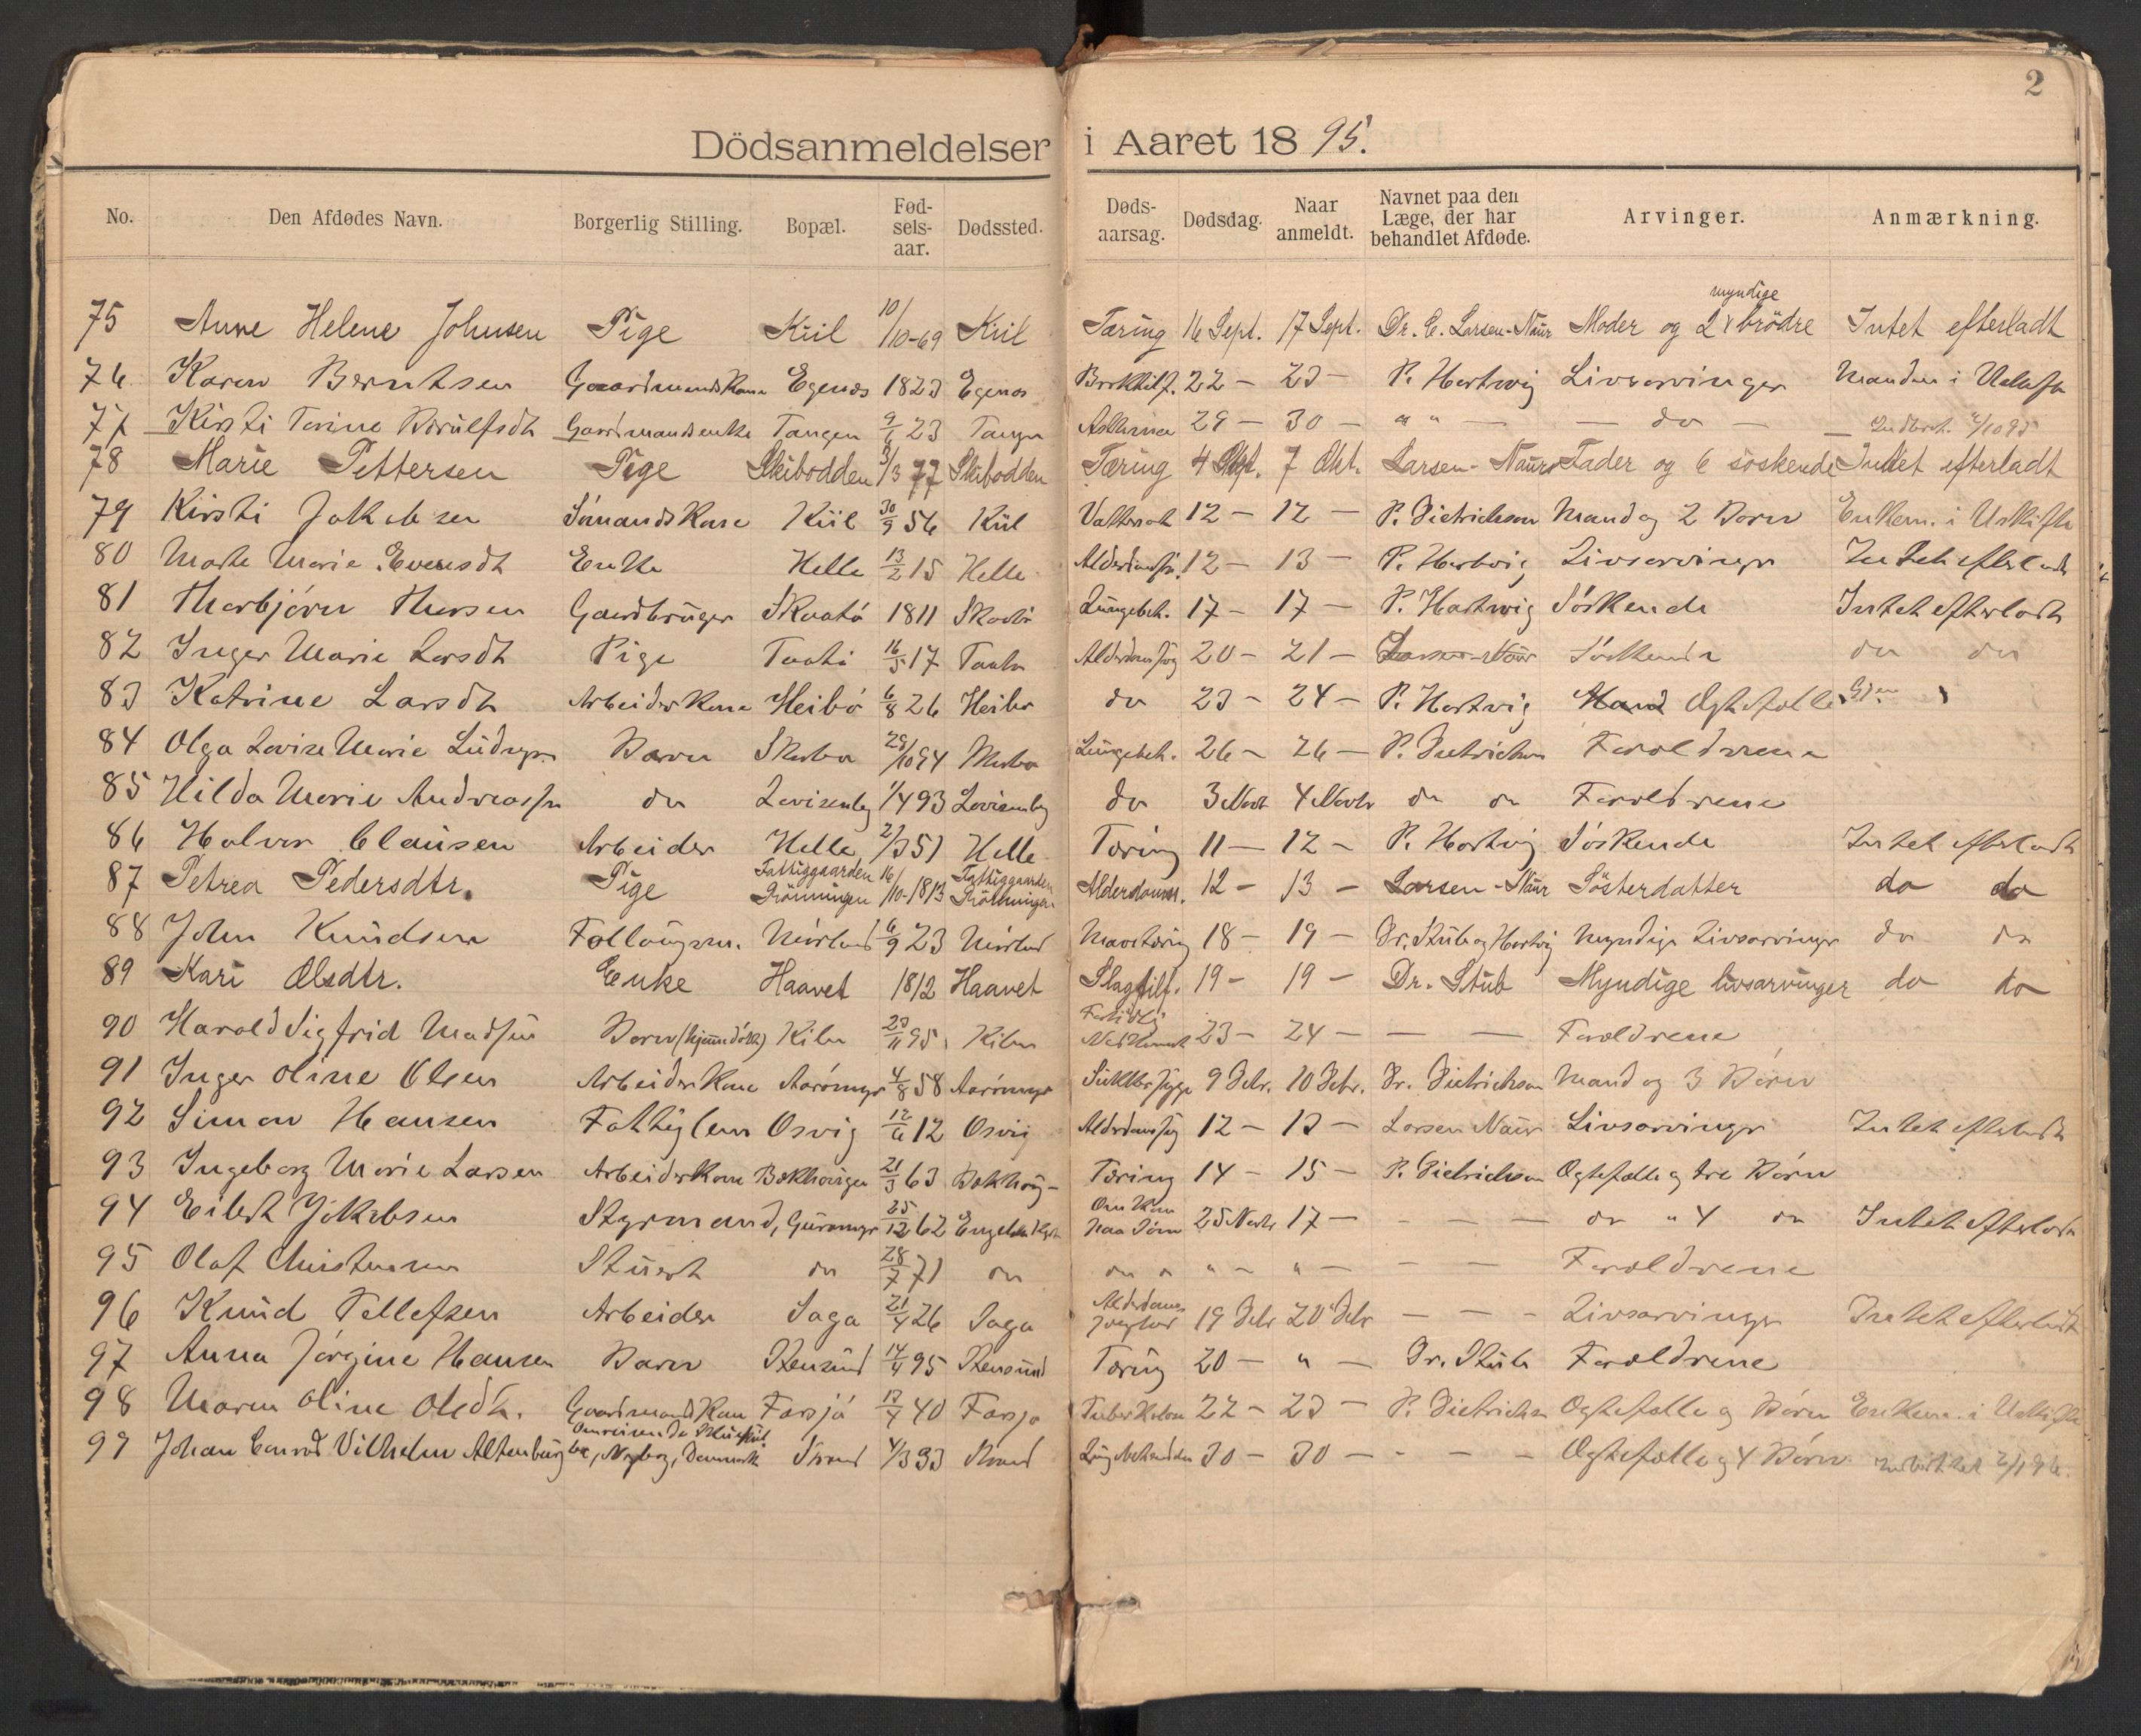 2
Dödsanmeldelser i Aaret 1895.
No. Den Afdødes Navn. Borgerlig Stilling. Bopæl. Fødselsaar. Dødssted. Dødsaarsag. Dødsdag. Naar anmeldt. Navnet paa den Læge, der har behandlet Afdøde. Arvinger. Anmærkning.
75 Anne Helene Johnsen Pige Kiil 10/10-69 Kiil Tæring 16 Sept. 17 Sept. Dr. C. Larsen-Naur Moder og 2 myndige brödre Intet efterladt
76 Karen Berntsen Gaardmandskone Egenæs 1823 Egenæs 22 – 23 – P. Hartvig Livsarvinger Manden i
77 Kirsti Torine Gaardmandsenke Tangen 9/6 23 Tangen 29 – 30 – " " – – do – 4/10 95
78 Marie Pettersen Pige Skibodden 3/3 77 Skibodden Tæring 4 Okt. 7 Okt. Larsen-Naur Fader og 6 söskende Intet efterladt
79 Kirsti Jakobsen Sömandskone Kiil 30/9 56 Kiil Vattersot 12 – 12 – P. Dietrichson Mand og 2 Børn Enkem. i Uskifte
80 Marte Marie Evensdt Enke Helle 13/2 15 Helle 12 – 13 – P. Hartvig Livsarvinger Intet efterladt
81 Thorbjörn Gaardbruger Skaatö 1811 Skaatö Lungebet. 17 – 17 – P. Hartwig Söskende Intet efterladt
82 Inger Marie Larsdt Pige Taatö 16/5 17 Taatö Alderdomssvag 20 – 21 – Larsen-Naur Söskende do do
83 Katrine Larsdt Arbeiderkone Heibö 6/8 26 Heibö do 23 – 24 – P. Hartvig Mand Ægtefælle
84 Olga Lovise Marie Barn 28/10 94 Lungebet. 26 – 26 – P. Dietrichson Forældrene
85 Hilda Marie Andreassen do Lovisenberg 1/4 93 Lovisenberg do 3 Novbr 4 Novbr do do Forældrene
86 Halvor Clausen Arbeider Helle 2/3 51 Helle Tæring 11 – 12 – P. Hartvig Söskende Intet efterladt
87 Petrea Pedersdtr. Pige Fattiggaarden Rönningen 16/10-1813 Fattiggaarden Rönningen Alderdomss. 12 – 13 – Larsen-Naur Sösterdatter do do
88 John Knudsen 6/9 23 18 – 19 – Dr. Stub og Hartvig Myndige Livsarvinger do do
89 Kari Olsdtr. Enke Haavet 1812 Haavet Slagtilf. 19 – 19 – Dr. Stub Myndige livsarvinger do do
90 Harald Sigfrid Madsen Barn (hjemmedöbt) Kilen 23/11 95 Kilen 23 – 24 – – – Forældrene
91 Inger Oline Olsen Arbeiderkone Aarömyr 4/8 58 Aarömyr 9 Debr. 10 Debr. Dr. Dietrichson Mand og 3 Børn
92 Simon Hansen Fattiglem Osvig 12/6 12 Osvig Alderdomssvag 12 – 13 – Larsen Naur Livsarvinger Intet efterladt
93 Ingeborg Marie Larsen Arbeiderkone 21/3 63 Tæring 14 – 15 – P. Dietrichson Ægtefælle og tre Børn
94 Eilert Jakobsen Styrmand, Gumöy 25/12 62 Omkom paa Söen 25 Novbr 17 – – – – do " 4 do Intet efterladt
95 Olaf Christensen Stuert do 28/7 71 do do " " – " – – – Forældrene
96 Knud Tellefsen Arbeider Saga 21/4 26 Saga 19 Debr 20 Debr – – – Livsarvinger Intet efterladt
97 Anna Jörgine Hansen Barn Stensund 14/4 95 Stensund Tæring 20 – " – Dr. Stub Forældrene
98 Maren Oline Olsdt. Gaardmandskone Farsjö 13/4 40 Farsjö Tuberkulose 22 – 23 – P. Dietrichson Ægtefælle og Børn Enkem. i Uskifte
99 Johan Conrad Vilhelm Altenburg Nyborg, Danmark 4/3 33 30 – 30 – – – – Ægtefælle og 4 Børn Indberettet 2/1 96.